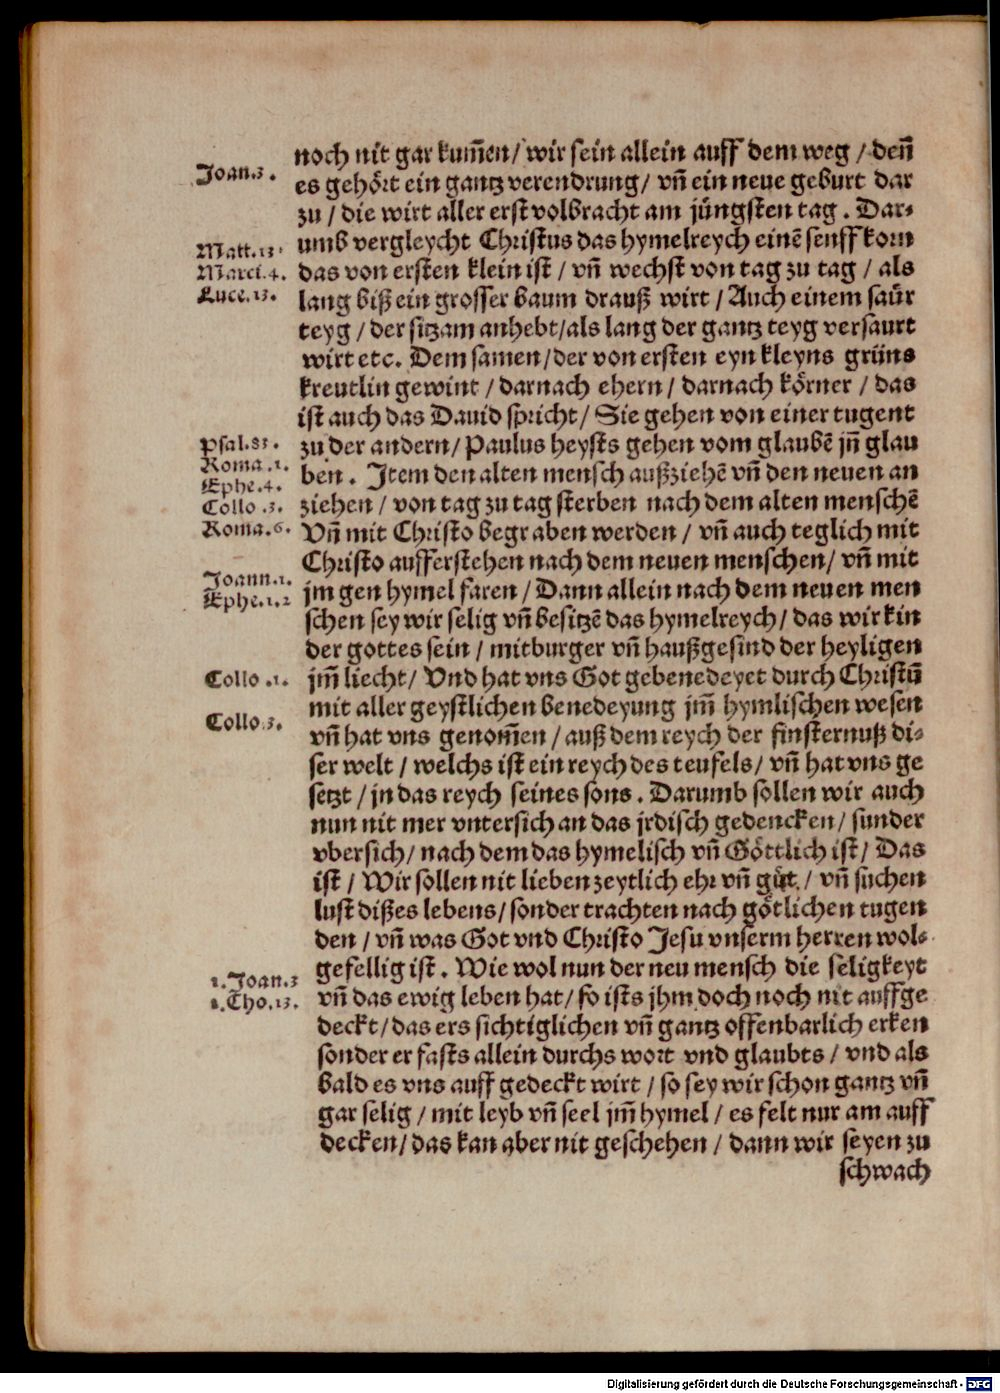 noch nit gar kum̄en / wir sein allein auff dem weg / den̄
Joan.3.
es gehört ein gantz verendrung / vn̄ ein neue geburt dar
zu / die wirt aller erst volbracht am jüngsten tag . Dar⸗
Matt.13.
umb vergleycht Christus das hymelreych einē senff korn
Marci.4.
das von ersten klein ist / vn̄ wechst von tag zu tag / als
Luce.13.
lang biß ein grosser baum drauß wirt / Auch einem saür
teyg / der sitzam anhebt / als lang der gantz teyg versaurt
wirt etc. Dem samen / der von ersten eyn kleyns grüns
kreutlin gewint / darnach ehern / darnach körner / das
ist auch das Dauid spricht / Sie gehen von einer tugent
Psal.83.
zu der andern / Paulus heysts gehen vom glaubē jn̄ glau
Roma.1.
ben . Jtem den alten mensch außziehē vn̄ den neuen an
Ephe.4.
Collo.3.
ziehen / von tag zu tag sterben nach dem alten menschē
Roma.6.
Vn̄ mit Christo begraben werden / vn̄ auch teglich mit
Christo aufferstehen nach dem neuen menschen / vn̄ mit
Joann.1.
jm gen hymel faren / Dann allein nach dem neuen men
Ephe.1.2
schen sey wir selig vn̄ besitzē das hymelreych / das wir kin
der gottes sein / mitburger vn̄ haußgesind der heyligen
Collo.1.
jm̄ liecht / Vnd hat vns Got gebenedeyet durch Christū
mit aller geystlichen benedeyung jm̄ hymlischen wesen
Collo.3.
vn̄ hat vns genom̄en / auß dem reych der finsternuß di⸗
ser welt / welchs ist ein reych des teufels / vn̄ hat vns ge
setzt / jn das reych seines sons . Darumb sollen wir auch
nun nit mer vntersich an das jrdisch gedencken / sunder
vbersich / nach dem das hymelisch vn̄ Göttlich ist / Das
ist / Wir sollen nit lieben zeytlich ehr vn̄ gůt / vn̄ sůchen
lust dißes lebens / sonder trachten nach götlichen tugen
den / vn̄ was Got vnd Christo Jesu vnserm herren wol⸗
gefellig ist . Wie wol nun der neu mensch die seligkeyt
1.Joan.3
vn̄ das ewig leben hat / so ists jhm doch noch nit auffge
1.Cho.13.
deckt / das ers sichtiglichen vn̄ gantz offenbarlich erken
sonder er fasts allein durchs wort vnd glaubts / vnd als
bald es vns auff gedeckt wirt / so sey wir schon gantz vn̄
gar selig / mit leyb vn̄ seel jm̄ hymel / es felt nur am auff
decken / das kan aber nit geschehen / dann wir seyen zu
schwach
Digitalisierung gefördert durch die Deutsche Forschungsgemeinschaft - DFG